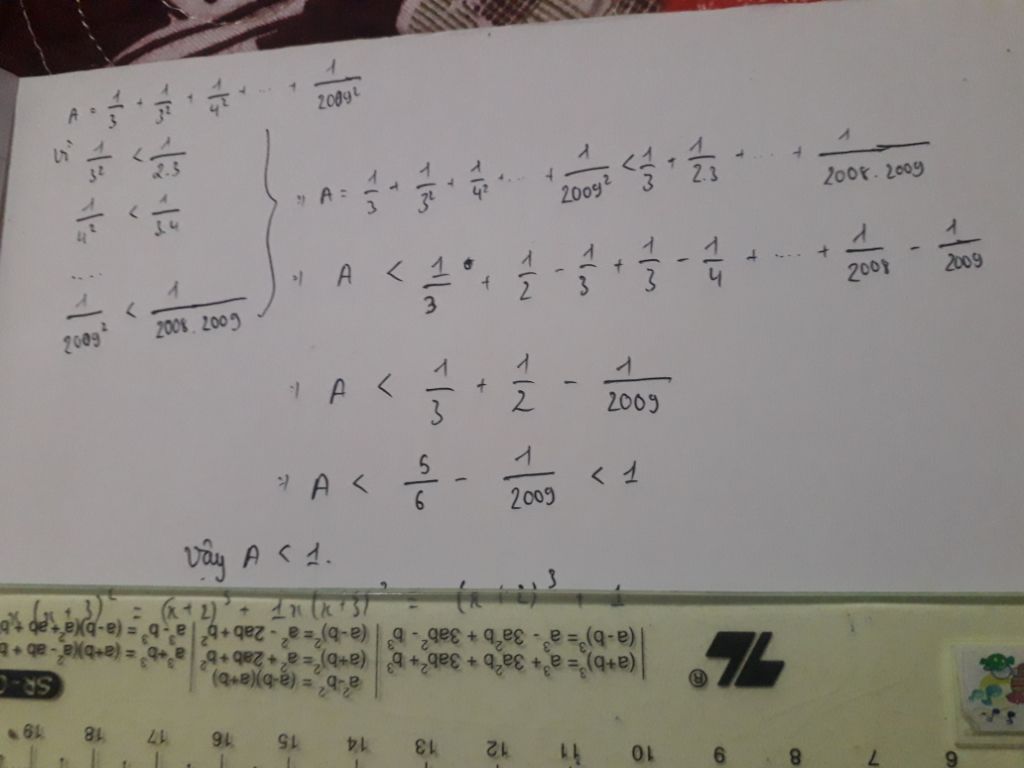 A = 1/3 + 1/3² + 1/4² + ... + 1/2009²
Vì 1/3² < 1/2.3
1/4² < 1/3.4
....
1/2009² < 1/2008.2009
⇒ A = 1/3 + 1/3² + 1/4² + ... + 1/2009² < 1/3 + 1/2.3 + ... + 1/2008.2009
⇒ A < 1/3 + 1/2 - 1/3 + 1/3 - 1/4 + ... + 1/2008 - 1/2009
⇒ A < 1/3 + 1/2 - 1/2009
⇒ A < 5/6 - 1/2009 < 1
Vậy A < 1.
a²-b² = (a-b)(a+b)
(a+b)²=a²+2ab+b²
(a-b)²=a²-2ab+b²
(a+b)³=a³+3a²b+3ab²+b³
(a-b)³=a³-3a²b+3ab²-b³
a³+b³=(a+b)(a²-ab+b
a³-b³=(a-b)(a²+ab+b
®
SR-
6 7 8 9 10 11 12 13 14 15 16 17 18 19